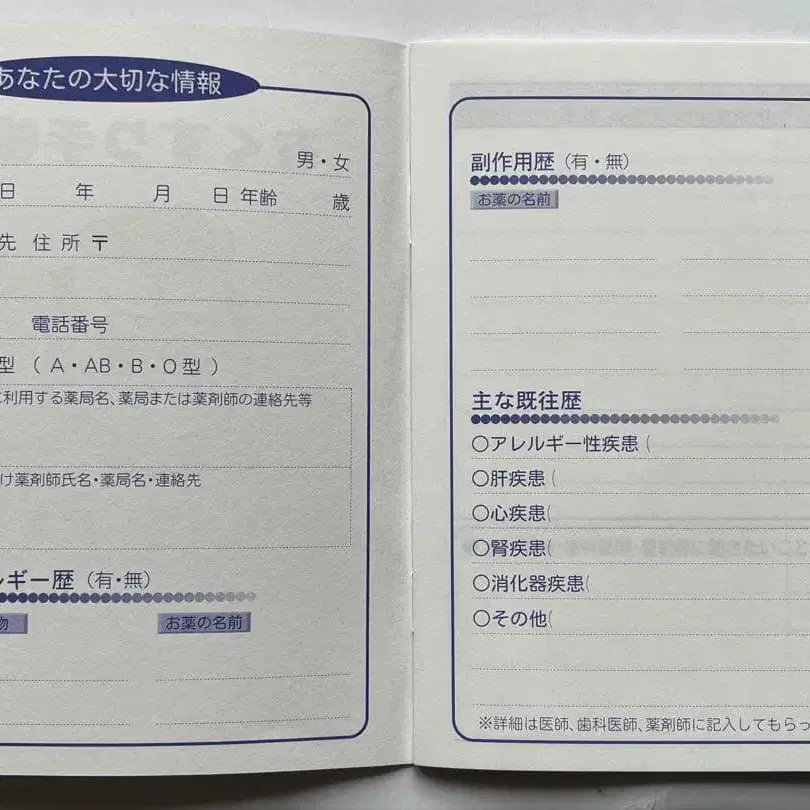 あなたの大切な情報
男・女
日 年 月 日 年齢 歳
先 住 所 〒
電話番号
型 ( A・AB・B・O 型 )
利用する薬局名、薬局または薬剤師の連絡先等
け薬剤師氏名・薬局名・連絡先
ルギー歴 (有・無)
物 お薬の名前
副作用歴 (有・無)
お薬の名前
主な既往歴
○アレルギー性疾患 (
○肝疾患 (
○心疾患(
○腎疾患(
○消化器疾患(
○その他(
※詳細は医師、歯科医師、薬剤師に記入してもらっ